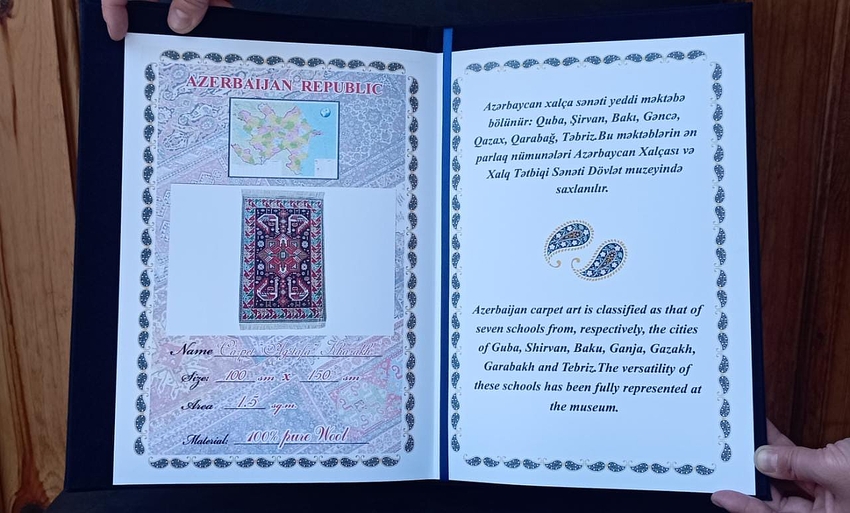 AZERBAIJAN REPUBLIC
Name Carpet
Size: 100 sm x 150 sm
Area 1.5 sq.m.
Material: 100% pure Wool
Azərbaycan xalça sənəti yeddi məktəbə
bölünür: Quba, Şirvan, Bakı, Gəncə,
Qazax, Qarabağ, Təbriz.Bu məktəblərin ən
parlaq nümunələri Azərbaycan Xalçası və
Xalq Tətbiqi Sənəti Dövlət muzeyində
saxlanılır.
Azerbaijan carpet art is classified as that of
seven schools from, respectively, the cities
of Guba, Shirvan, Baku, Ganja, Gazakh,
Garabakh and Tebriz.The versatility of
these schools has been fully represented at
the museum.